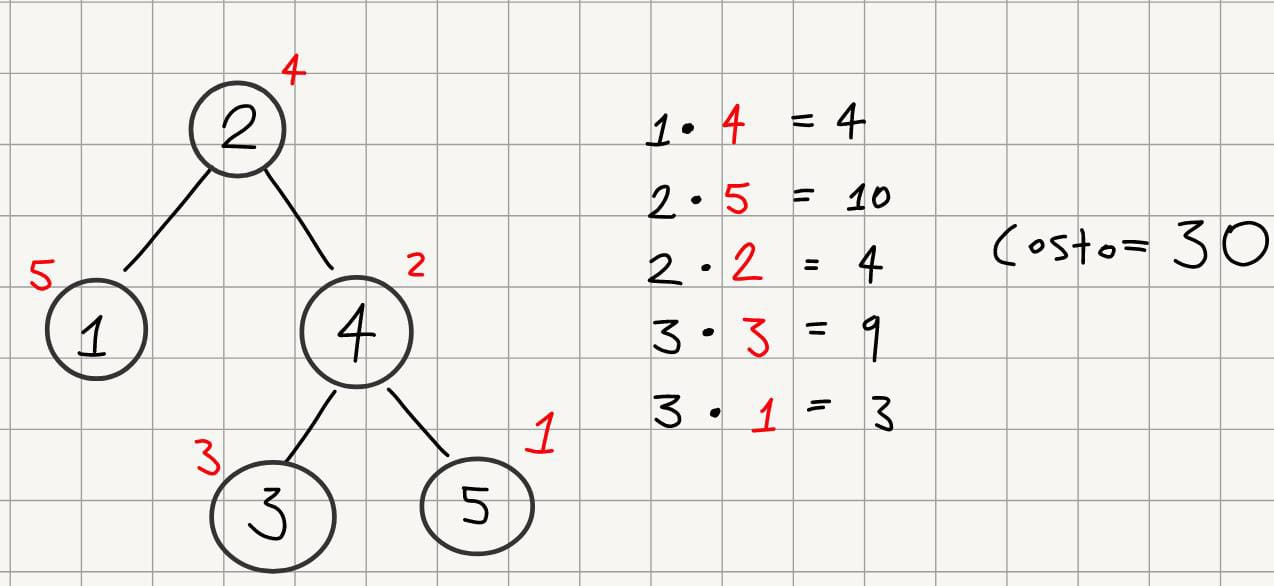 4
2
5
1
2
4
3
3
1
5
1 · 4 = 4
2 · 5 = 10
2 · 2 = 4
3 · 3 = 9
3 · 1 = 3
Costo = 30